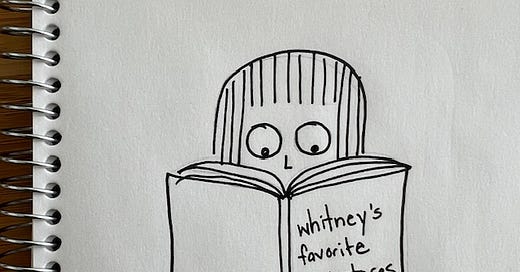 whitney's
favorite